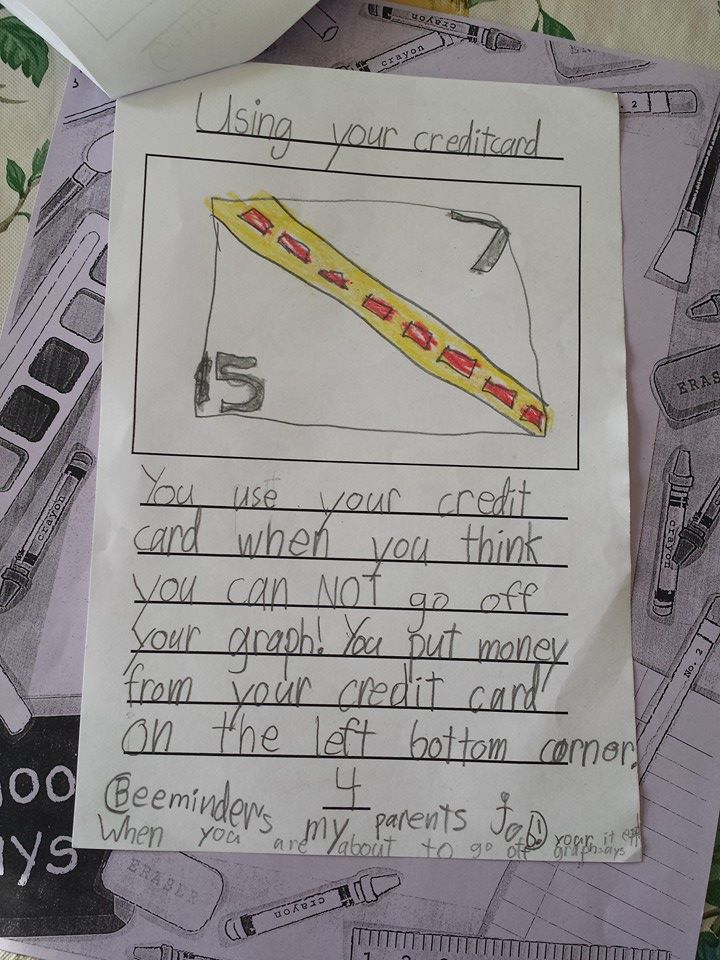 Using your creditcard
7
15
You use your credit
card when you think
you can NOT go off
your graph! You put money
from your credit card
on the left bottom corner.
4
Beeminders my parents job!
When you are about to go off your graph it says
crayon
crayon
crayon
crayon
crayon
crayon
ERASER
ERAS
No. 2
2
1 2